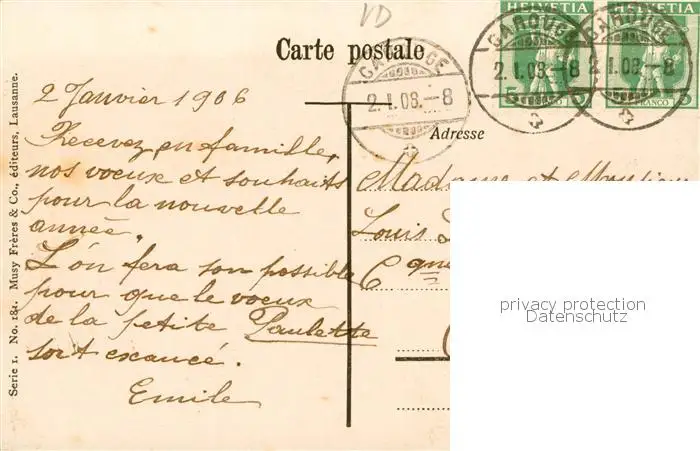 VD
Carte postale
HELVETIA
HELVETIA
CAROUGE
2.I.08.-8
CAROUGE
2.I.08.-8
CAROUGE
2.I.08.-8
5
FRANCO
FRANCO
5
Adresse
2 Janvier 1906
Recevez en famille,
nos voeux et souhaits
pour la nouvelle
année.
L'on fera son possible
pour que le voeux
de la petite Paulette
soit exaucé.
Emile
Madame et
Louis
C
Serie 1. No. 184. Musy Frères & Co., éditeurs, Lausanne.
privacy protection
Datenschutz